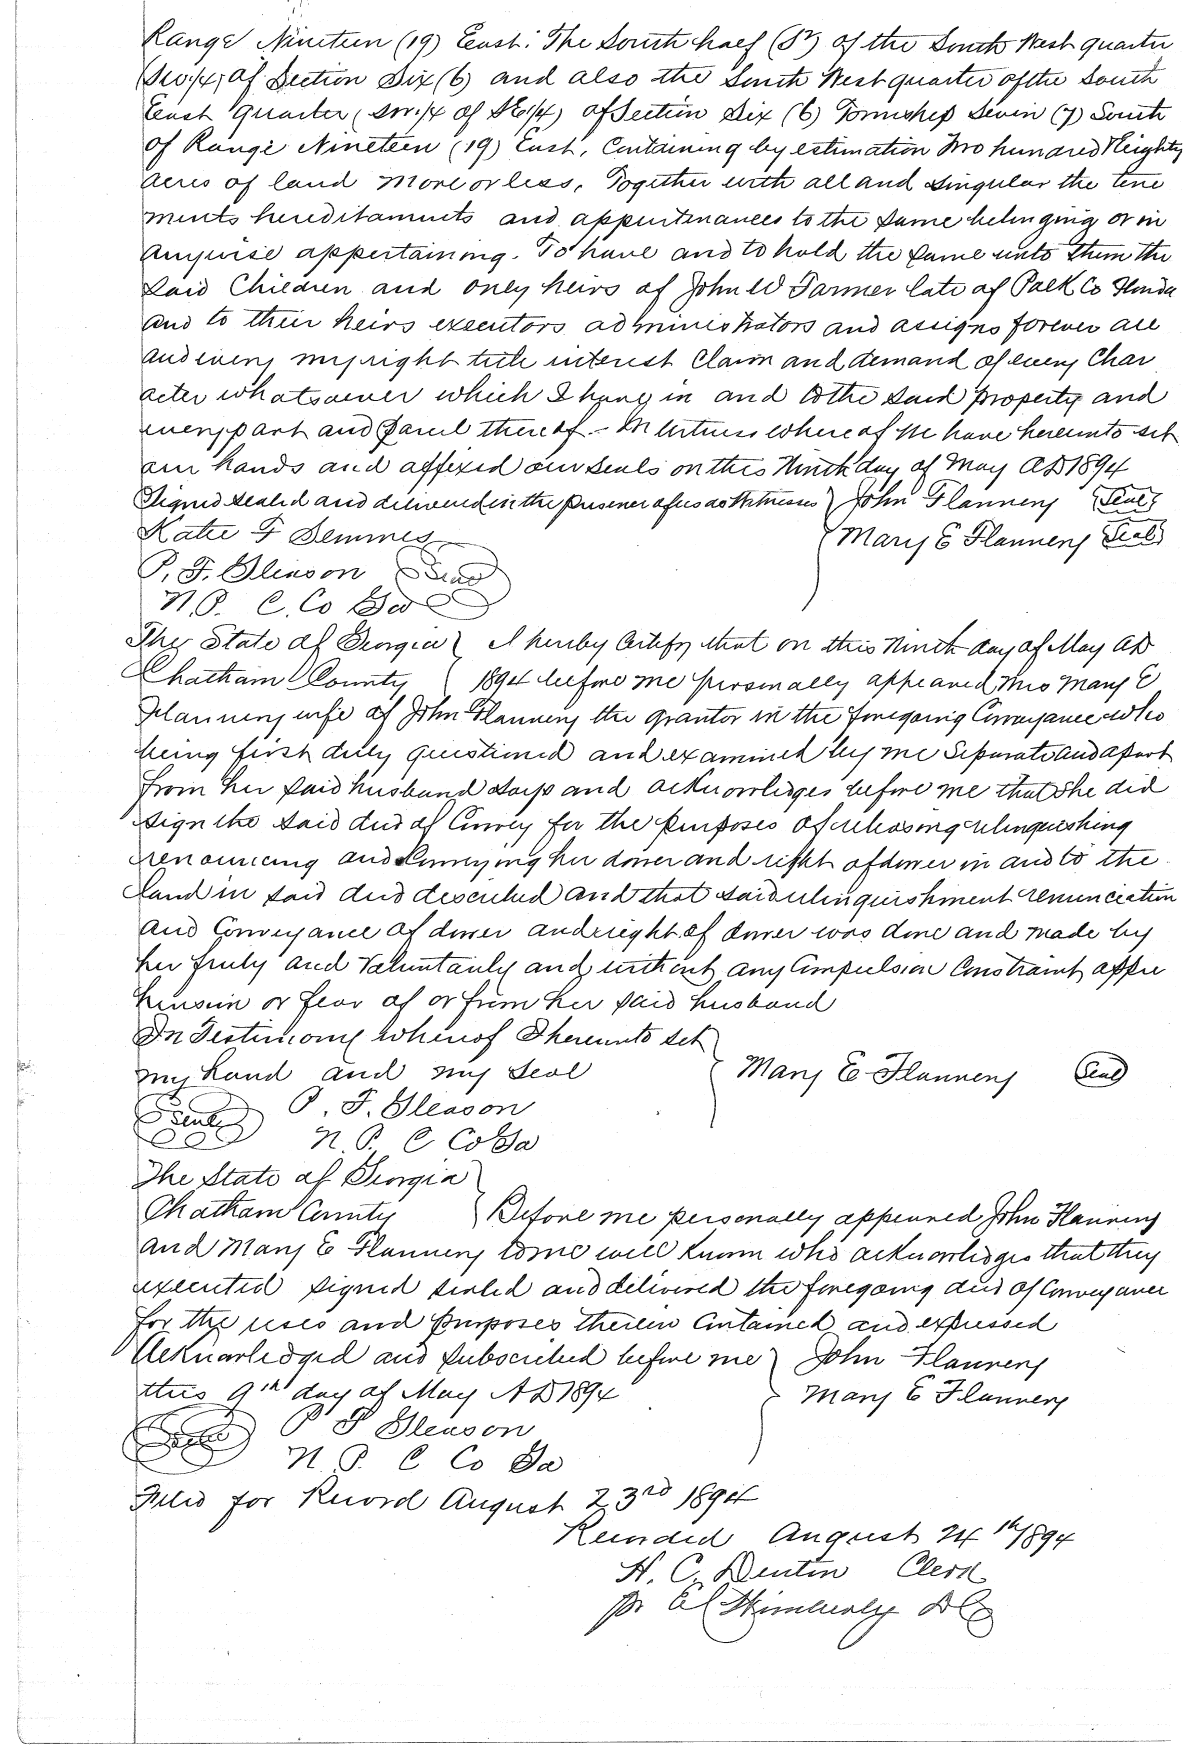 Range Nineteen (19) East: The South half (S½) of the South West quarter
(SW¼) of Section Six (6) and also the South West quarter of the South
East quarter (SW¼ of SE¼) of Section Six (6) Township Seven (7) South
of Range Nineteen (19) East, Containing by estimation Two hundred & Eighty
acres of land more or less, Together with all and singular the tene
ments hereditaments and appurtenances to the same belonging or in
anywise appertaining. To have and to hold the same unto them the
said Children and only heirs of John W Farmer late of Polk Co Florida
and to their heirs executors administrators and assigns forever all
and every my right title interest Claim and demand of every Char
acter whatsoever which I have in and to the said property and
every part and parcel thereof - In witness whereof we have hereunto set
our hands and affixed our seals on this Ninth day of May AD 1894
Signed sealed and delivered in the presence of us as Witnesses } John Flannery (Seal)
Katie F Semmes } Mary E Flannery (Seal)
P. F. Gleason (Seal)
N.P. C. Co Ga
The State of Georgia } I hereby Certify that on this Ninth day of May AD
Chatham County { 1894 before me personally appeared Mrs Mary E
Flannery wife of John Flannery the grantor in the foregoing Conveyance who
being first duly questioned and examined by me Separate and apart
from her said husband says and acknowledges before me that she did
sign the said deed of Convey for the purposes of releasing relinquishing
renouncing and Conveying her dower and right of dower in and to the
land in said deed described and that said relinquishment renunciation
and Conveyance of dower and right of dower was done and made by
her freely and Voluntarily and without any Compulsion Constraint appre
hension or fear of or from her said husband
In Testimony whereof I hereunto set
my hand and my seal } Mary E Flannery (Seal)
(Seal) P. F. Gleason
N. P. C Co Ga
The State of Georgia }
Chatham County } Before me personally appeared John Flannery
and Mary E Flannery to me well known who acknowledges that they
executed signed sealed and delivered the foregoing deed of Conveyance
for the uses and purposes therein Contained and expressed
Acknowledged and subscribed before me } John Flannery
this 9th day of May AD 1894 } Mary E Flannery
(Seal) P F Gleason
N. P. C Co Ga
Filed for Record August 23rd 1894
Recorded August 24th/1894
H. C. Denton Clerk
pr Wimberly DC